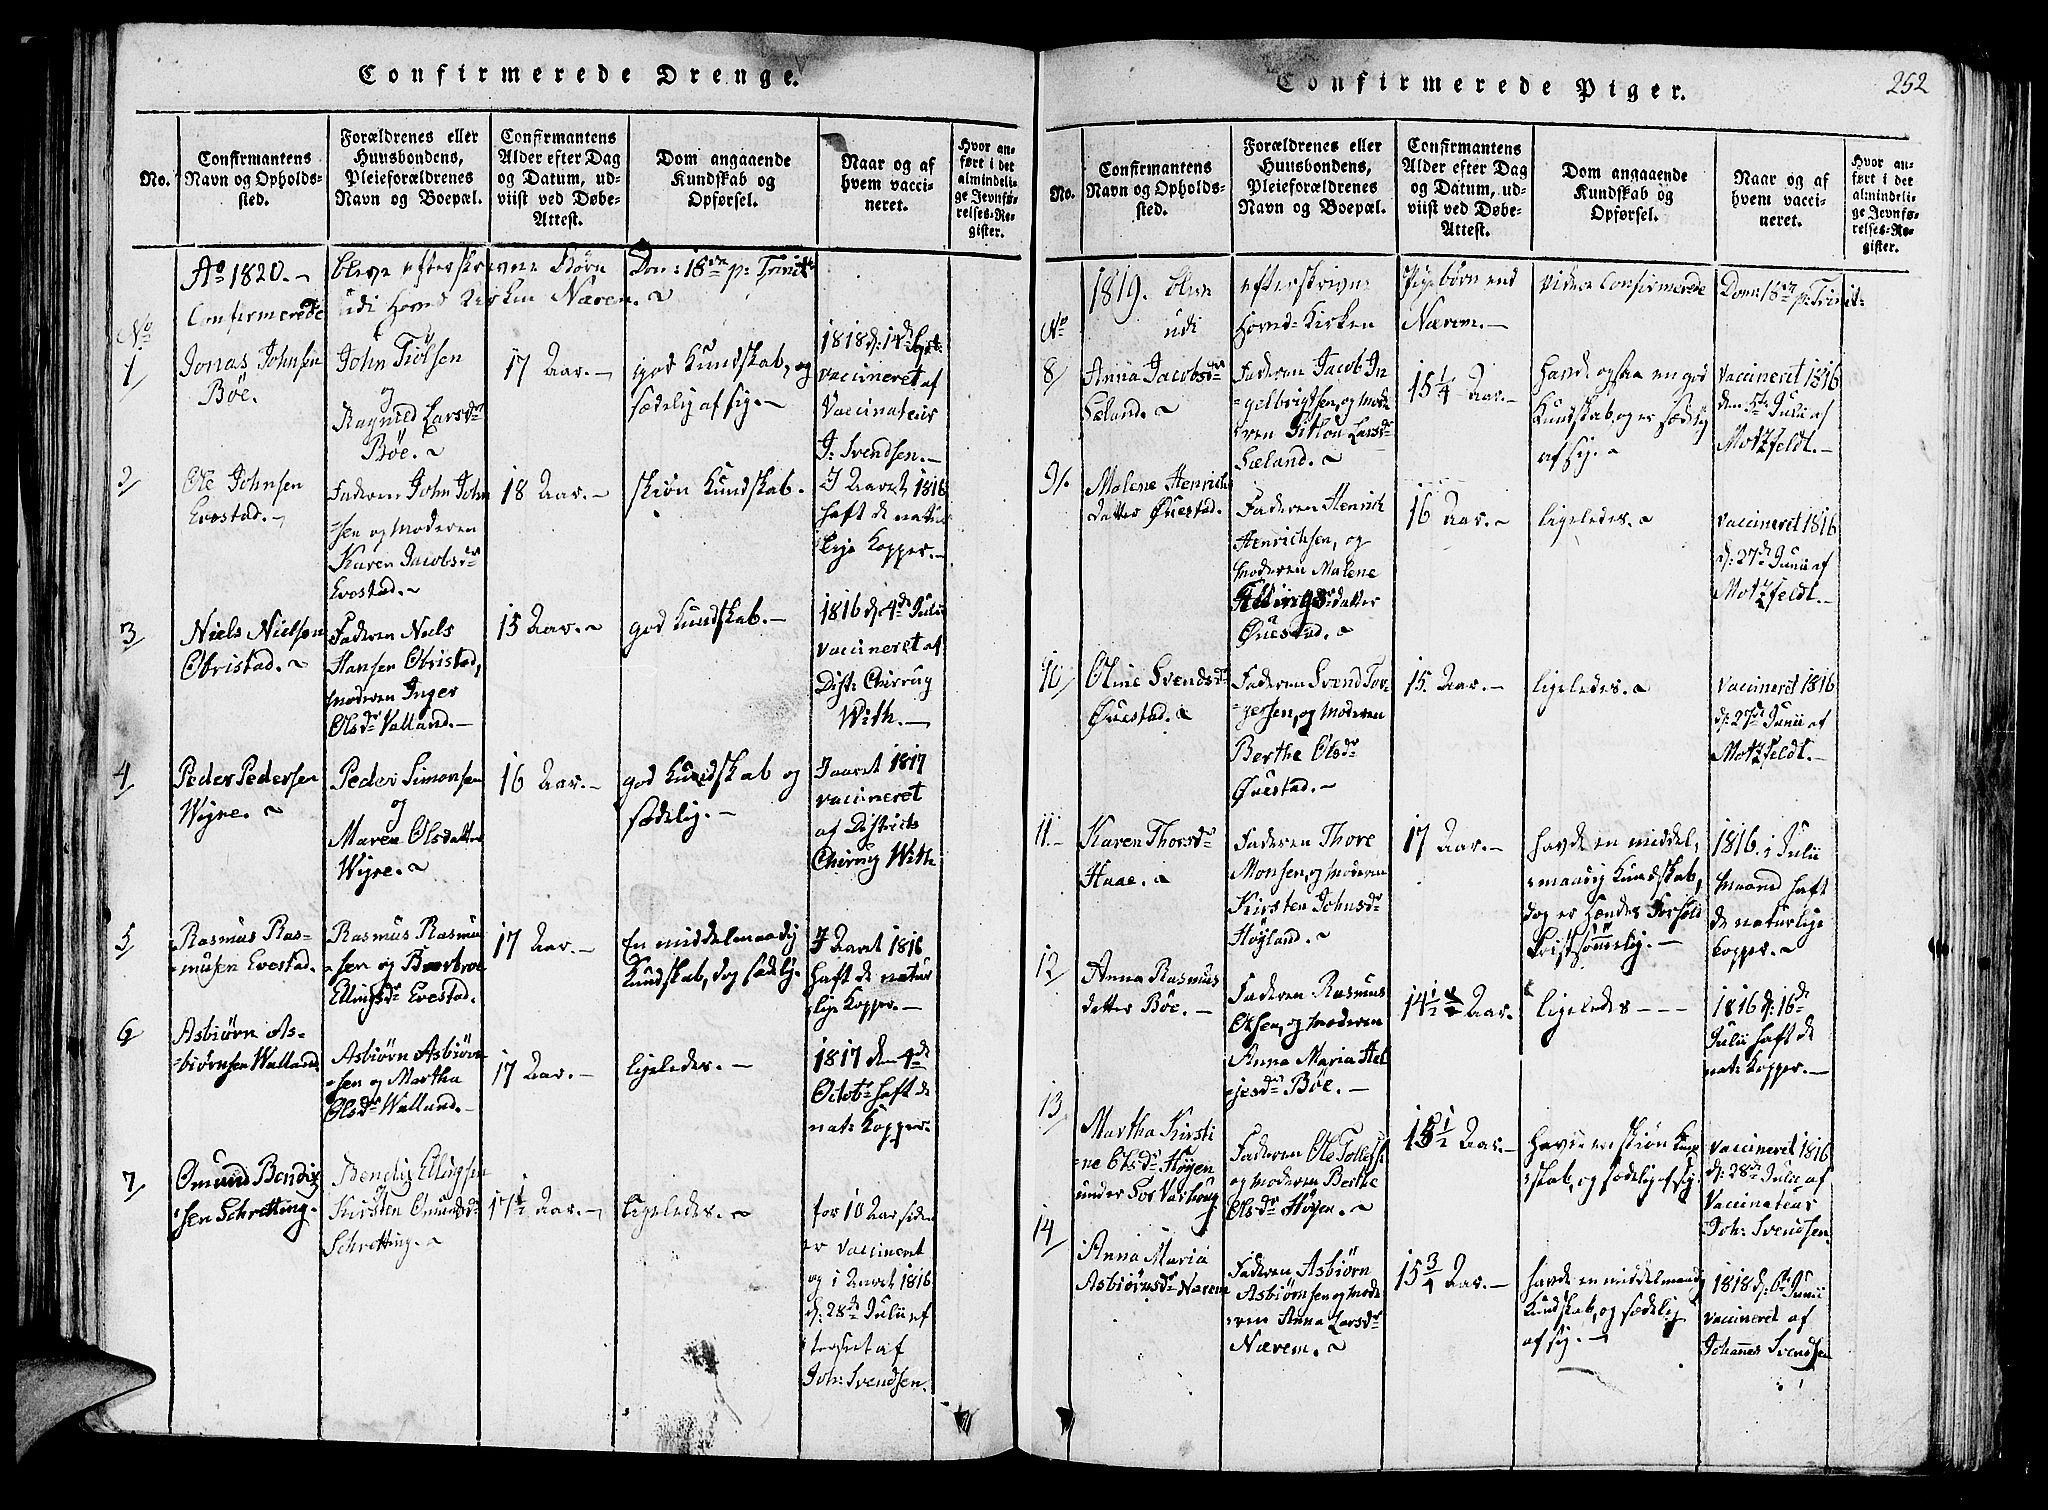 Confirmerede Drenge.
No.
Confirmantens
Navn og Opholds-
sted.
Forældrenes eller
Huusbondens,
Pleieforældrenes
Navn og Boepæl.
Confirmantens
Alder efter Dag
og Datum, ud-
viist ved Døbe-
Attest.
Dom angaaende
Kundskab og
Opførsel.
Naar og af
hvem vacci-
neret.
Hvor an-
ført i det
almindeli-
ge Jevnfø-
relses-Re-
gister.
Ao 1820. bleve efterskrevne Børn Dom: 18de p: Trinit:
Confirmerede udi Hornd Kirken Nærem.
No
1
Jonas Johnsen
Bøe.
John Tiølsen
og
Ragnild Larsdr
Bøe.
17 Aar.
god Kundskab, og
sædelig af sig.
1818 d: 14de
vaccineret af
Vaccinateur
J: Svendsen.
2
Ole Johnsen
Evestad.
Faderen John John
sen og Moderen
Karen Jacobsdr
Evestad.
18 Aar.
skiøn Kundskab.
I Aaret 1816
haft de natur
lige Kopper.
3
Niels Nielsen
Obristad.
Faderen Niels
Hansen Obristad,
Moderen Inger
Olsdr Valland.
15 Aar.
god Kundskab.
1816 d: 4de Julii
vaccineret af
Dist: Chirrug
With.
4
Peder Pedersen
Wigre.
Peder Simonsen
og
Maren Olsdatter
Wigre.
16 Aar.
god Kundskab og
sædelig.
I aaret 1817
vaccineret
af Districts
Chirug With
5
Rasmus Ras-
musen Evestad.
Rasmus Rasmu
sen og Barbroe
Ellingsdr Evestad.
17 Aar.
En middelmaadig
Kundskab, dog sædelig.
I Aaret 1816
haft de natur
lige Kopper.
6
Asbiørn As-
biørnsen Walland.
Asbiørn Asbiørn
sen og Martha
Olsdr Walland.
17 Aar.
ligeledes.
1817 den 4de
Octob: haft de
nat: Kopper.
7
Omund Bendix
sen Schretting.
Bendix Ellingsen
Kirsten Omundsdr
Schretting.
17 1/2 Aar.
ligeledes.
for 10 Aar siden
er vaccineret
og i Aaret 1816
d: 28de Julii ef
terseet af
Joh: Svendsen.
Confirmerede Piger.
252
No.
Confirmantens
Navn og Opholds-
sted.
Forældrenes eller
Huusbondens,
Pleieforældrenes
Navn og Boepæl.
Confirmantens
Alder efter Dag
og Datum, ud-
viist ved Døbe-
Attest.
Dom angaaende
Kundskab og
Opførsel.
Naar og af
hvem vacci-
neret.
Hvor an-
ført i det
almindeli-
ge Jevnfø-
relses-Re-
gister.
1819. bleve efterskrevne Pigebørn end videre Confirmerede Dom: 18de p: Trinit:
udi Hornd-Kirken Nærem.
No
8
Anna Jacobsdr
Sæland.
Faderen Jacob In
gelbrigtsen, og Mode
ren Larsdr
Sæland.
15 1/4 Aar.
havde ogsaa en god
Kundskab, og er sædelig
af sig.
Vaccineret 1816
den 5te Julii af
Motzfeldt.
9
Malene Henrichs
datter Øuestad.
Faderen Henrich
Henrichsen, og
Moderen Malene
Ellingsdatter
Øuestad.
16 Aar.
ligeledes.
Vaccineret 1816
d: 27de Junii af
Motzfeldt.
10
Oline Svendsdr
Øuestad.
Faderen Svend Tor
gersen, og Moderen
Berthe Olsdr
Øuestad.
15. Aar.
ligeledes.
Vaccineret 1816
d: 27de Junii af
Motzfeldt.
11.
Karen Thorsdr
Haae.
Faderen Thore
Monsen, og Moderen
Kirsten Johnsdr
Høyland.
17 Aar.
havde en middel,
maadig Kundskab,
dog er hendes Forhold
sømmelig.
1816. i Julii
Maaned haft
de naturlige
Kopper.
12
Anna Rasmus
datter Bøe.
Faderen Rasmus
Olsen, og Moderen
Anna Maria Hel
jesdr Bøe.
14 1/2 Aar.
ligeledes
1816 d: 16de
Julii haft de
nat: Kopper.
13
Martha Kirsti
ne Olsdr Høyen
under Varhoug
Faderen Ole Tollefs:
og Moderen Berthe
Olsdr Høyen.
15 1/2 Aar.
havde en skiøn Kund
skab, og sædelig af sig.
Vaccineret 1816
d: 28de Julii af
Vaccinateur
Joh: Svendsen.
14
Anna Maria
Asbiørnsdr Nærem
Faderen Asbiørn
Asbiørnsen og Mode
ren Anna Larsdr
Nærem.
15 3/4 Aar.
havde en middelmaadig
Kundskab, og sædelig
af sig.
1818 d: 6te Junii
vaccineret af
Johannes Svendsen